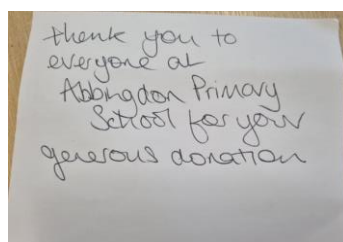 thank you to
everyone at
Abbingdon Primary
School for your
generous donation